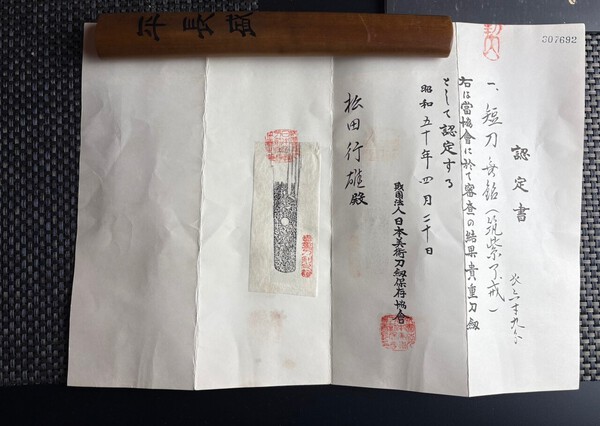 307692
認定書
一、短刀無銘(筑紫了戒)
長さ八寸九分
右は當協會に於て審査の結果貴重刀剱
として認定する
昭和五十年四月二十日
財団法人日本美術刀剱保存協會
松田行雄殿
平長盛